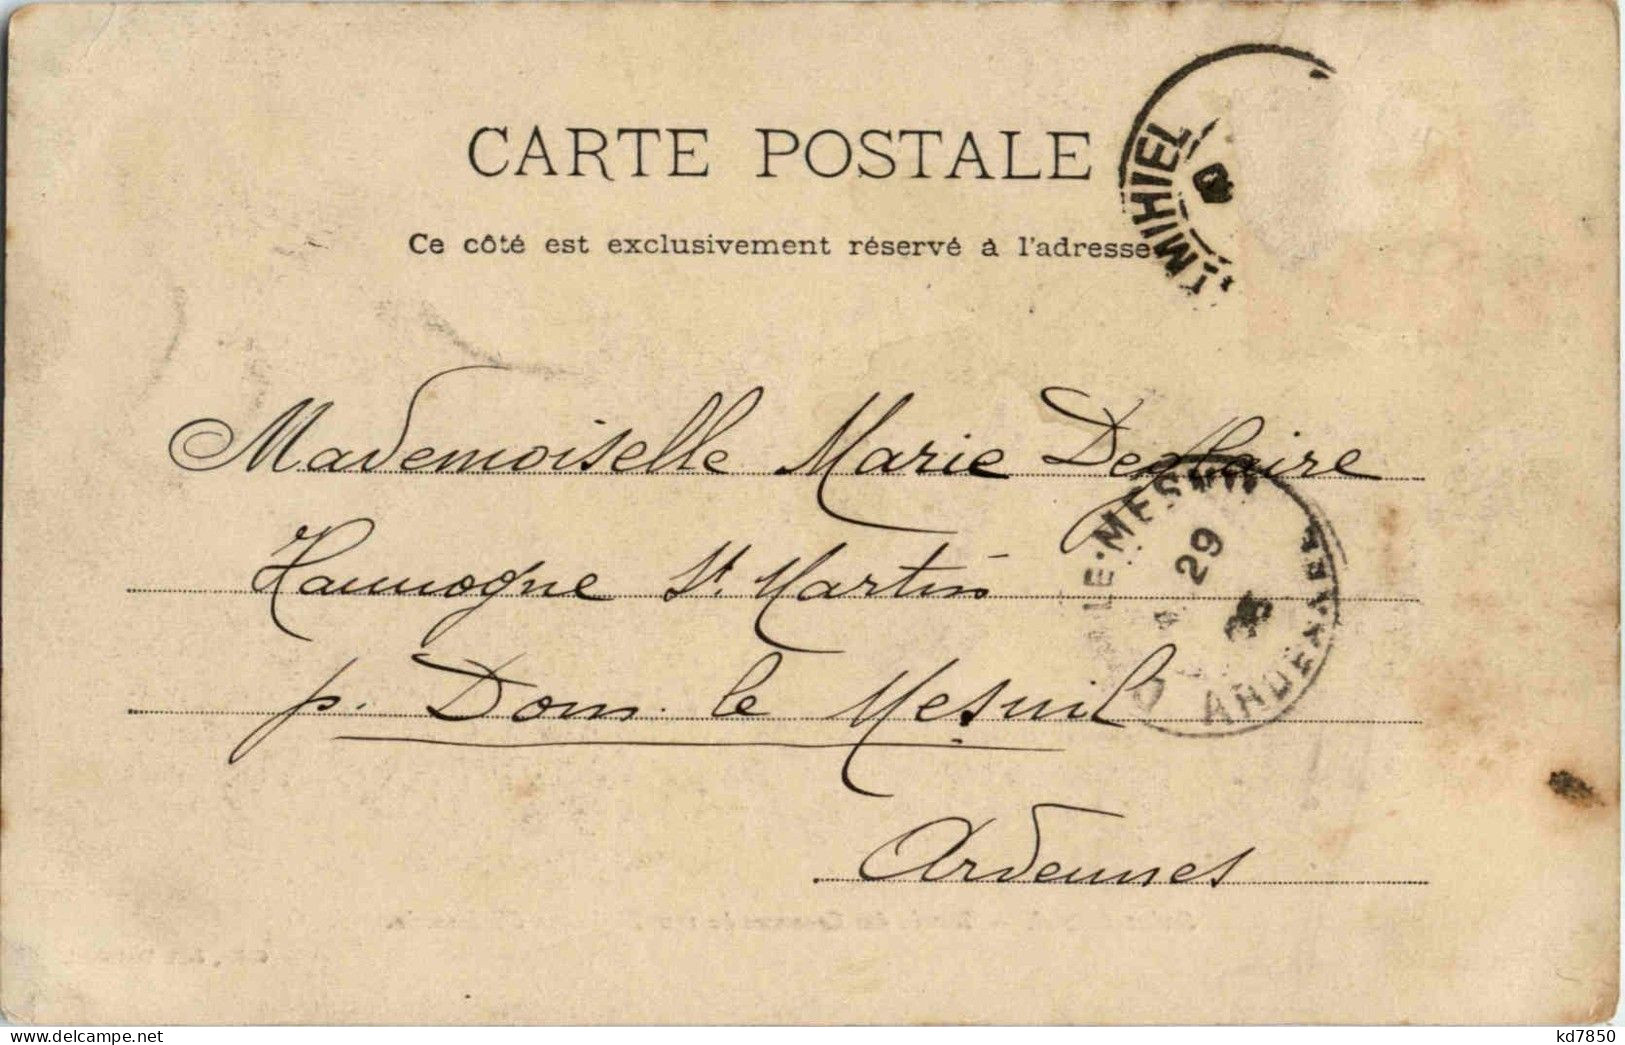 CARTE POSTALE
Ce côté est exclusivement réservé à l'adresse
MIHIEL
Mademoiselle Marie Deglaire
Hannogne St. Martin
p. Dom. le Mesnil
Ardennes
LE-MESNIL
29
ARDENNES
kd7850